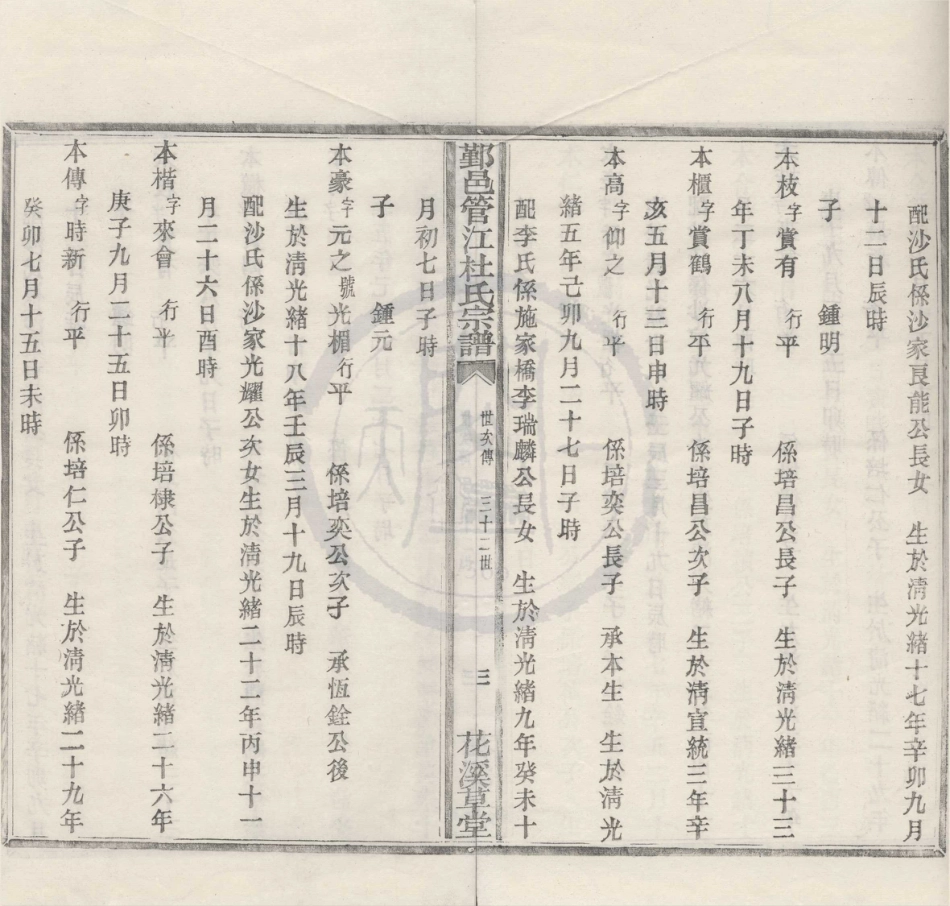 配沙氏係沙家良能公長女 生於清光緒十七年辛卯九月
十二日辰時
子 鍾明
本枝字賞有 行平 係培昌公長子 生於清光緒三十三
年丁未八月十九日子時
本櫃字賞鶴 行平 係培昌公次子 生於清宣統三年辛
亥五月十三日申時
本高字仰之 行平 係培奕公長子 承本生 生於清光
緒五年己卯九月二十七日子時
配李氏係施家橋李瑞麟公長女 生於清光緒九年癸未十
鄞邑管江杜氏宗譜 世次傳 三十二世 三 花溪草堂
月初七日子時
子 鍾元
本豪字元之號光楣行平 係培奕公次子 承恆銓公後
生於清光緒十八年壬辰三月十九日辰時
配沙氏係沙家光耀公次女生於清光緒二十二年丙申十一
月二十六日酉時
本楷字來會 行平 係培棣公子 生於清光緒二十六年
庚子九月二十五日卯時
本傳字時新 行平 係培仁公子 生於清光緒二十九年
癸卯七月十五日未時